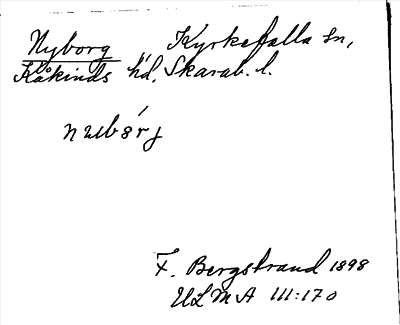 Nyborg Kyrkefalla sn,
Kåkinds hd. Skarab. l.
F. Bergstrand 1898
ULMA III:170